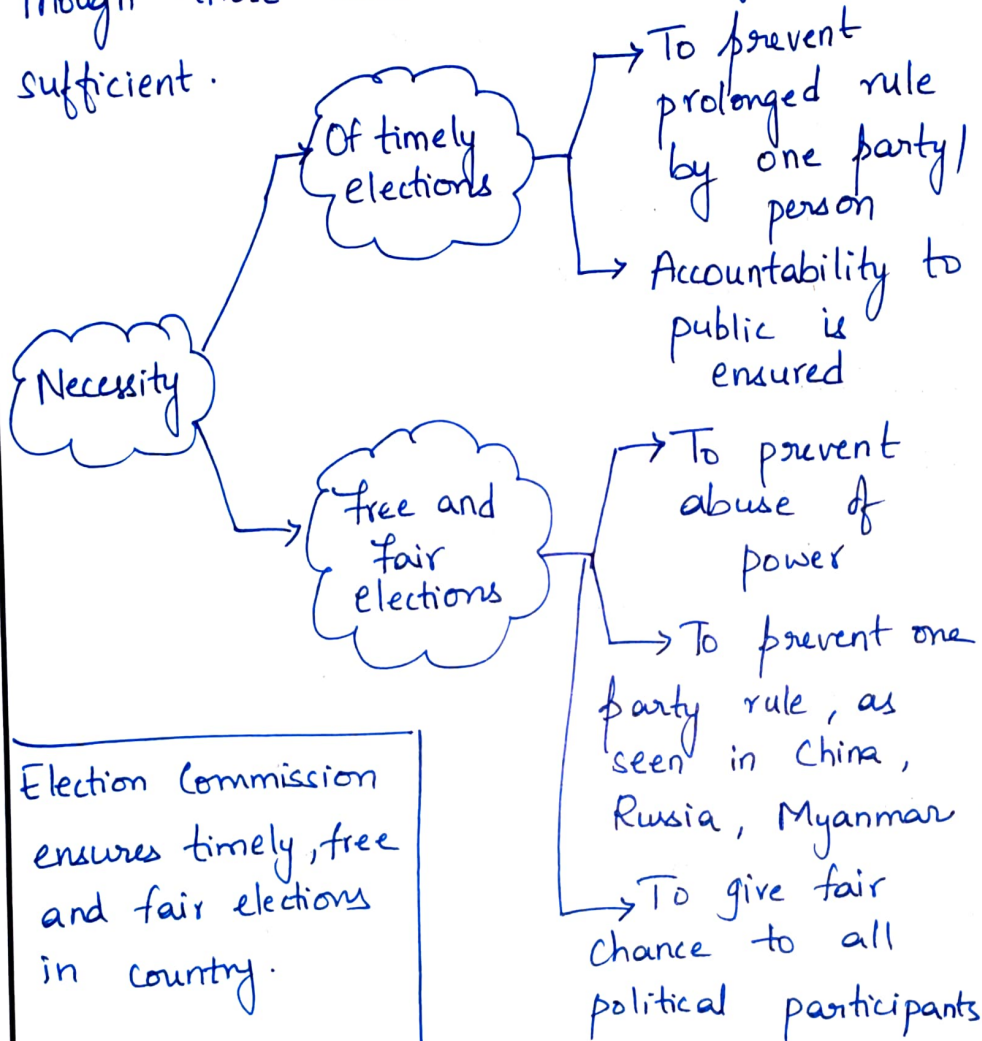 Though
sufficient.
Necessity
Of timely
elections
To prevent
prolonged rule
by one party/
person
Accountability to
public is
ensured
free and
fair
elections
To prevent
abuse of
power
To prevent one
party rule, as
seen in China,
Russia, Myanmar
To give fair
chance to all
political participants
Election Commission
ensures timely, free
and fair elections
in country.